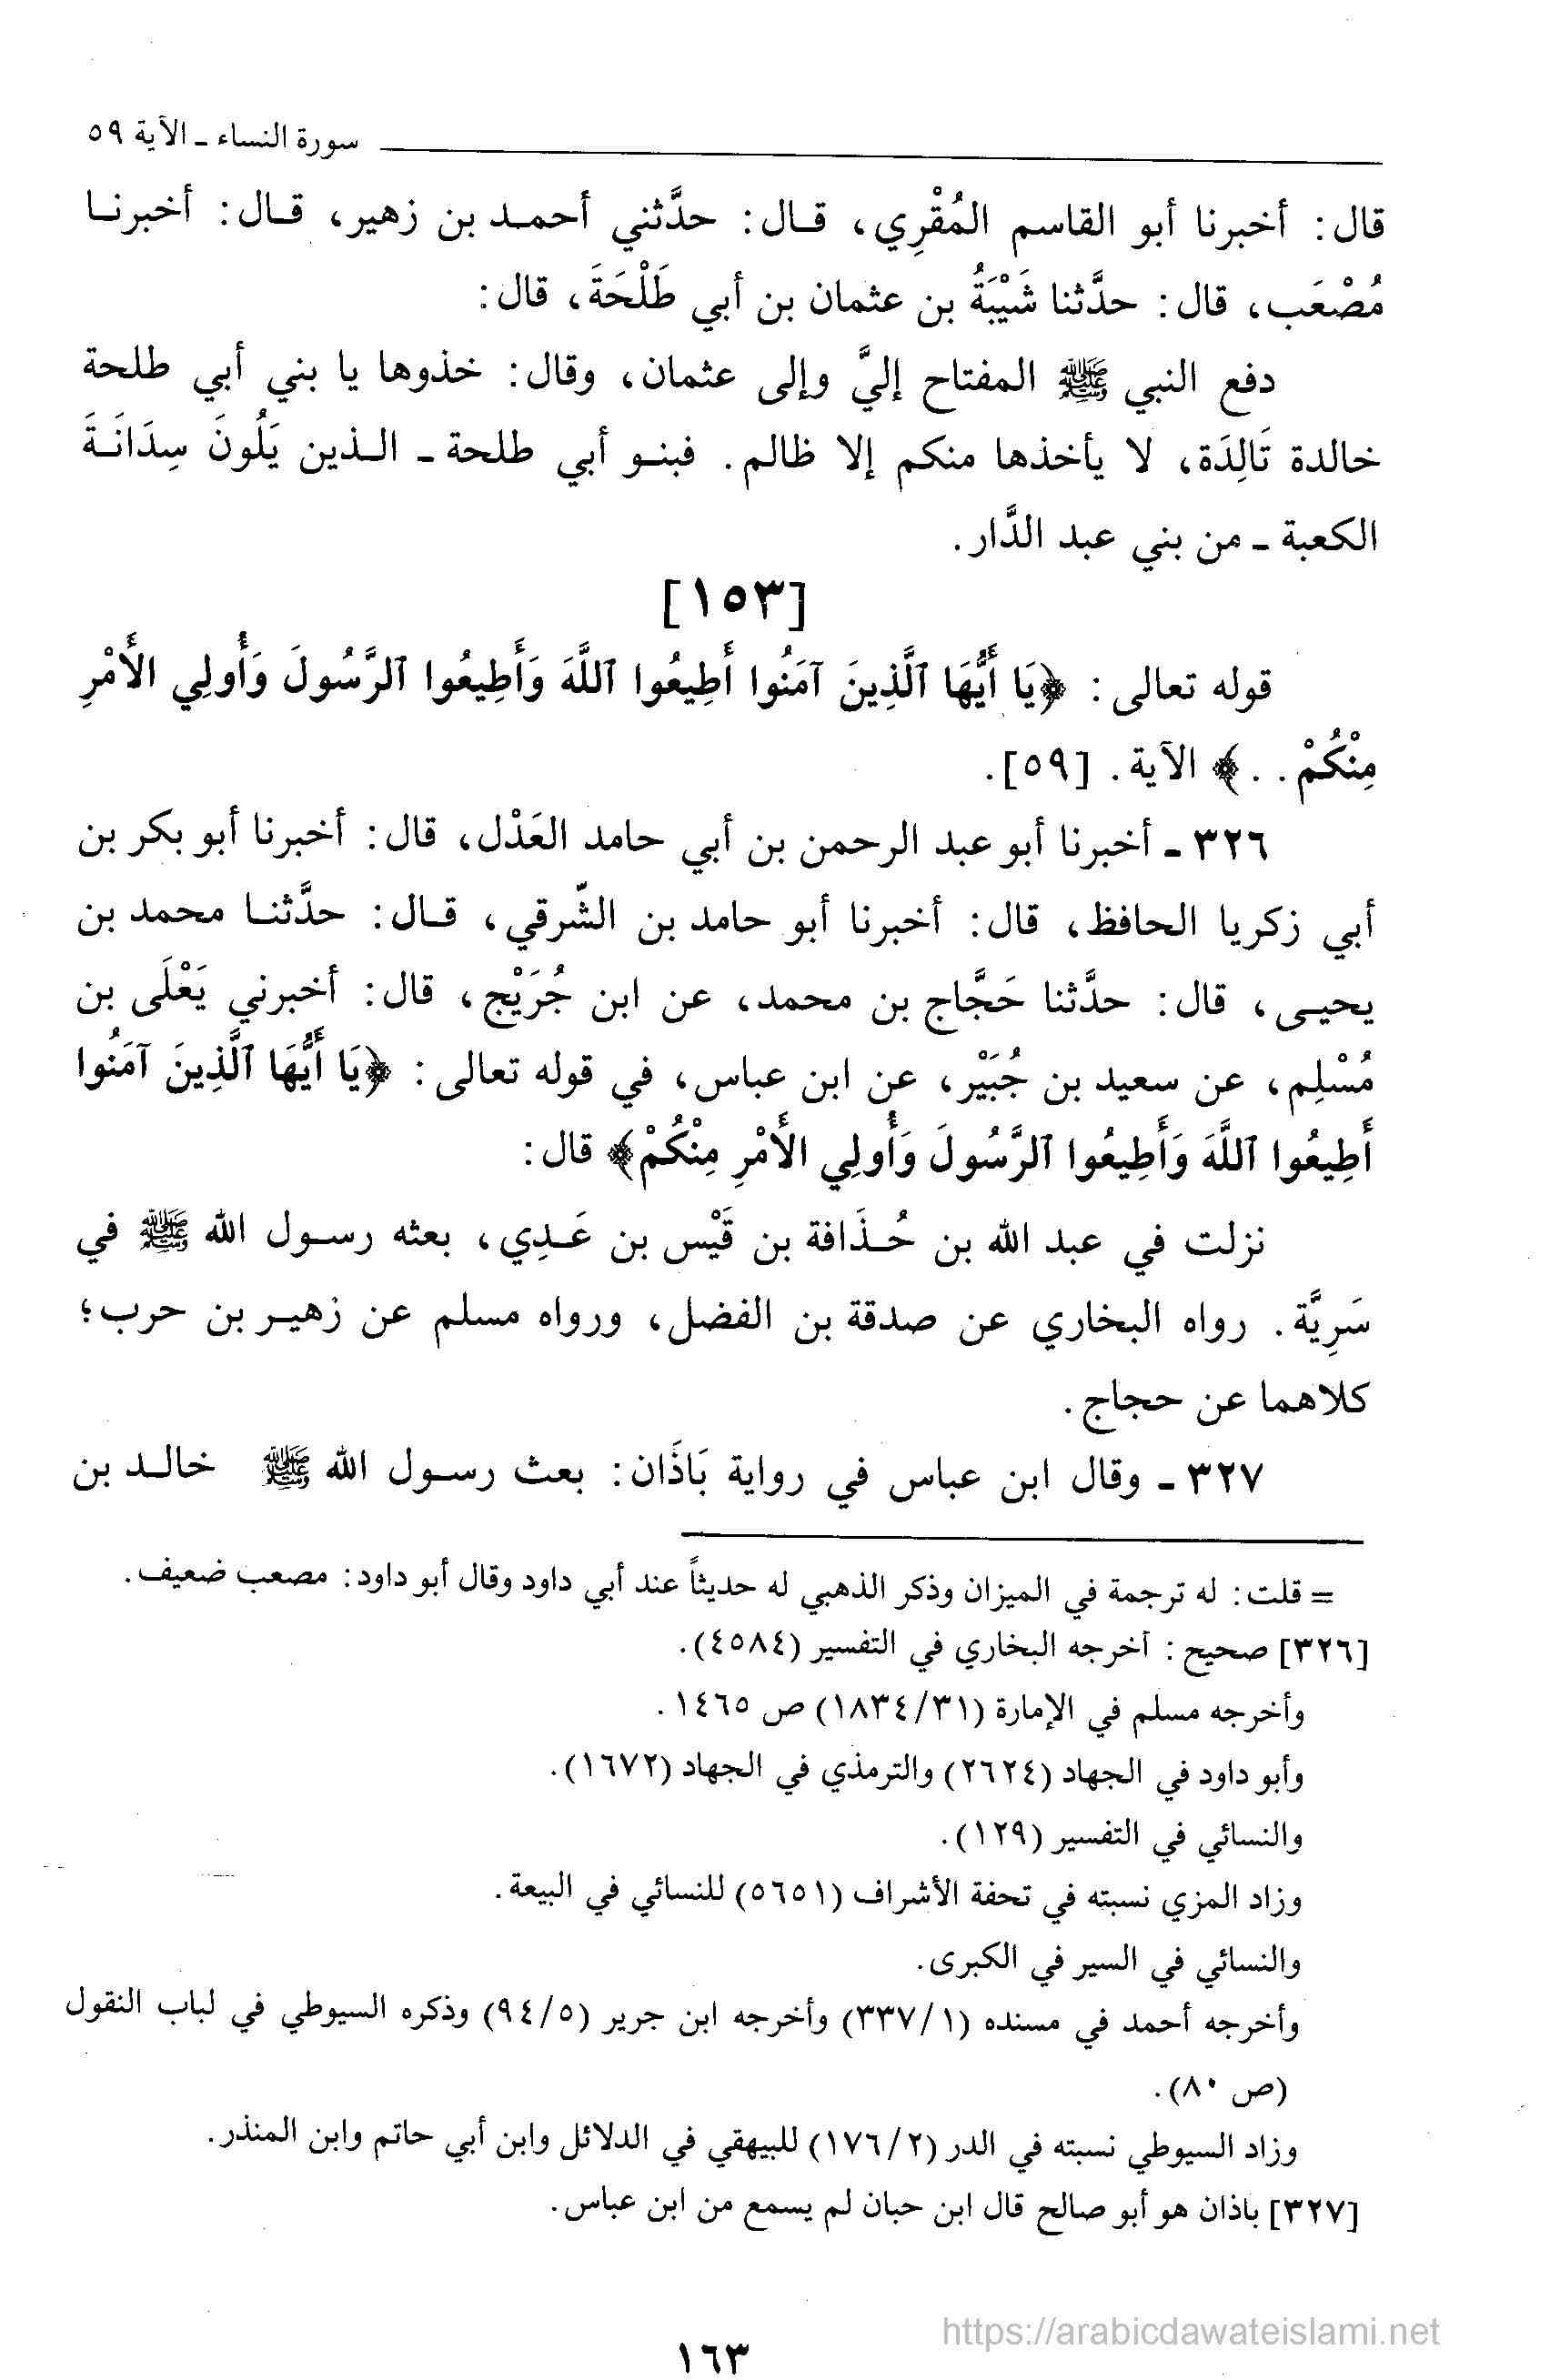 سورة النساء ـ الآية ٥٩
قال: أخبرنا أبو القاسم المُقْرِي، قـال: حدَّثني أحمـد بن زهير، قـال: أخبرنـا
مُصْعَب، قال: حدَّثنا شَيْبَةُ بن عثمان بن أبي طَلْحَةَ، قال:
دفع النبي ﷺ المفتاح إليَّ وإلى عثمان، وقال: خذوها يا بني أبي طلحة
خالدة تَالِدَة، لا يأخذها منكم إلا ظالم. فبنـو أبي طلحة ـ الـذين يَلُونَ سِدَانَـةَ
الكعبة ـ من بني عبد الدَّار.
[١٥٣]
قوله تعالى: ﴿يَا أَيُّهَا ٱلَّذِينَ آمَنُوا أَطِيعُوا ٱللَّهَ وَأَطِيعُوا ٱلرَّسُولَ وَأُولِي الأَمْرِ
مِنْكُمْ. . .﴾ الآية. [٥٩].
٣٢٦ ـ أخبرنا أبو عبد الرحمن بن أبي حامد العَدْل، قال: أخبرنا أبو بكر بن
أبي زكريا الحافظ، قال: أخبرنا أبو حامد بن الشّرقي، قـال: حدَّثنـا محمد بن
يحيـى، قال: حدَّثنا حَجَّاج بن محمد، عن ابن جُرَيْج، قال: أخبرني يَعْلَى بن
مُسْلِم، عن سعيد بن جُبَيْر، عن ابن عباس، في قوله تعالى: ﴿يَا أَيُّهَا ٱلَّذِينَ آمَنُوا
أَطِيعُوا ٱللَّهَ وَأَطِيعُوا ٱلرَّسُولَ وَأُولِي الأَمْرِ مِنْكُمْ﴾ قال:
نزلت في عبد الله بن حُـذَافة بن قَيْس بن عَـدِي، بعثه رسـول الله ﷺ في
سَرِيَّة. رواه البخاري عن صدقة بن الفضل، ورواه مسلم عن زهيـر بن حرب؛
كلاهما عن حجاج.
٣٢٧ ـ وقال ابن عباس في رواية بَاذَان: بعث رسـول الله ﷺ خالـد بن
= قلت: له ترجمة في الميزان وذكر الذهبي له حديثاً عند أبي داود وقال أبو داود: مصعب ضعيف.
[٣٢٦] صحيح: أخرجه البخاري في التفسير (٤٥٨٤).
وأخرجه مسلم في الإمارة (١٨٣٤/٣١) ص ١٤٦٥.
وأبو داود في الجهاد (٢٦٢٤) والترمذي في الجهاد (١٦٧٢).
والنسائي في التفسير (١٢٩).
وزاد المزي نسبته في تحفة الأشراف (٥٦٥١) للنسائي في البيعة.
والنسائي في السير في الكبرى.
وأخرجه أحمد في مسنده (٣٣٧/١) وأخرجه ابن جرير (٩٤/٥) وذكره السيوطي في لباب النقول
(ص ٨٠).
وزاد السيوطي نسبته في الدر (١٧٦/٢) للبيهقي في الدلائل وابن أبي حاتم وابن المنذر.
[٣٢٧] باذان هو أبو صالح قال ابن حبان لم يسمع من ابن عباس.
https://arabicdawateislami.net
١٦٣